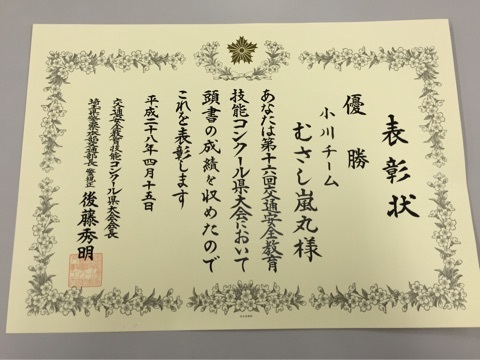 表彰状
優勝
小川チーム
むさし嵐丸様
あなたは第十六回交通安全教育
技能コンクール県大会において
頭書の成績を収めたので
これを表彰します
平成二十八年四月十五日
交通安全教育技能コンクール県大会会長
埼玉県警察本部交通部長 警視正 後藤秀明